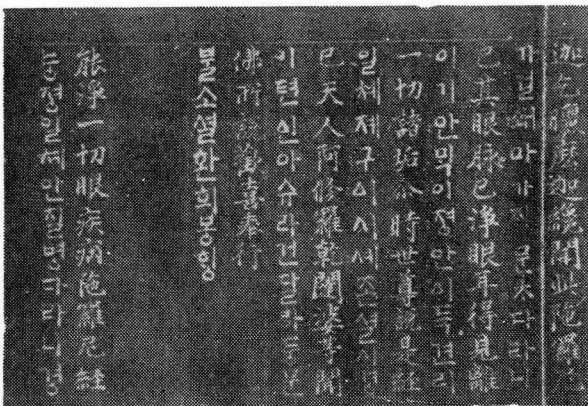 迦乞曬摩迦纔聞此陀羅尼
가걸쇄마가ᄌᆡ문차다라니
已其眼脉已淨眼耳得見離
이기안막이졍안이득견리
一切諸垢尒時世尊說是經
일체제구이시세존셜시경
已天人阿修羅乾闥婆等聞
이텬인아슈라건달바등문
佛所說歡喜奉行
불소셜환희봉힝
能淨一切眼疾病陀羅尼経
능졍일체안질병다라니경